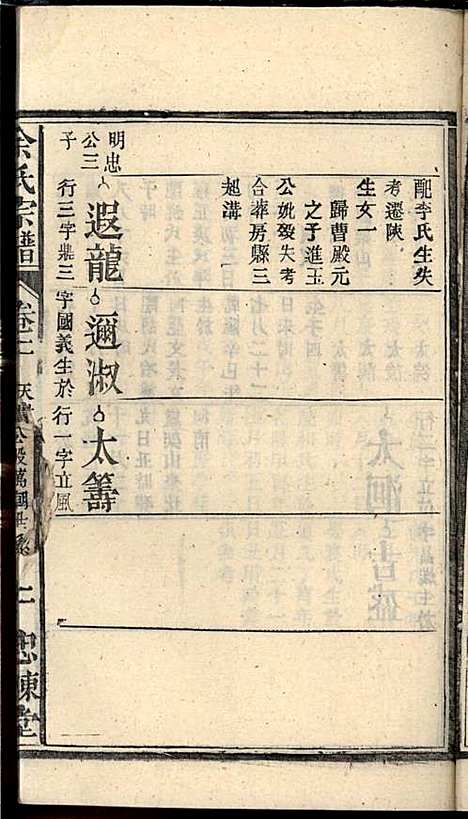 配李氏生失
考遷陝
生女一
歸曹殿元
之子進玉
公妣歿失考
合葬房縣三
起溝
明忠
公三
子
遐龍
行三字鼎三
邇淑
字國義生於
太籌
行一字立風
余氏宗譜
卷二
天貴公股萬國世系
二
忠諫堂